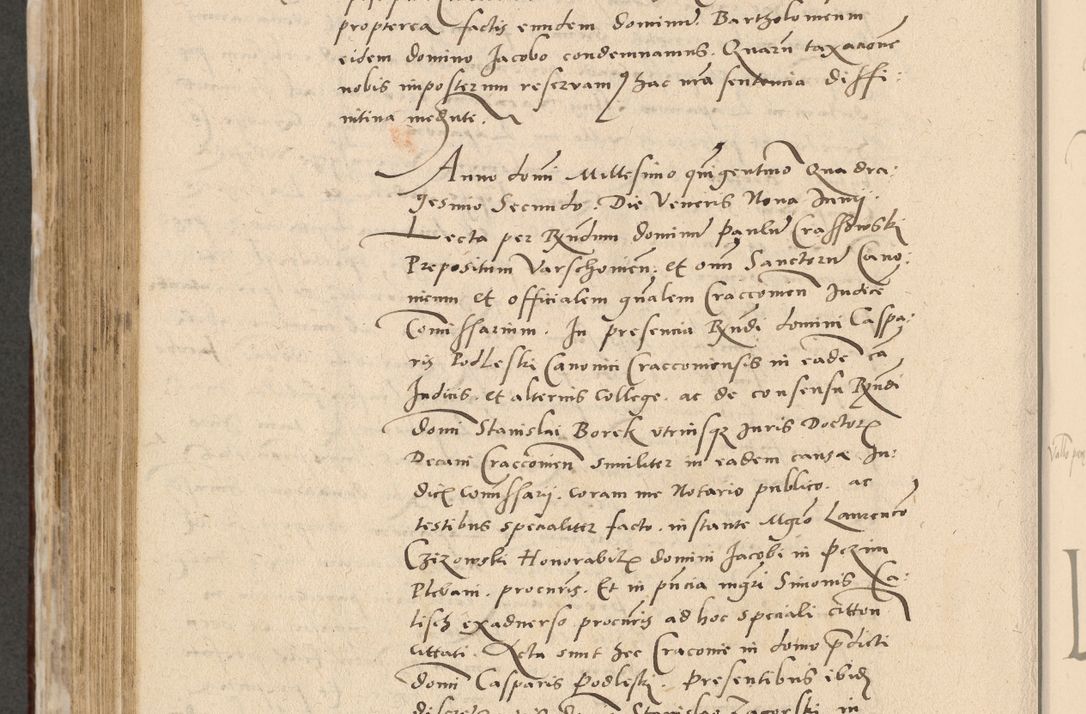 propterea factis eundem dominum Bartholomeum
eidem domino Jacobo condemnamus. Quarum taxacione
nobis imposterum reservam9 hac nra sentencia diffi:
nitiva mediante.
Anno domi Millesimo quigentimo Quadra:
gesimo Secundo. Die Veneris Nona Junij.
Lecta per Rndum dominu Paulu Crassowski
Prepositum Varschovien: et omi Sanctoru Cano:
nicum et officialem gnalem Craccovien Judice
Comissarium. In presencia Rndi domini Caspa:
ris Podleski Canonici Craccoviensis in eade ca
Judicis. et alterius College. ac de consensu Rndi
domi Stanislai Borek utriusq Juris Doctor
Decani Craccovien similiter in eadem causa Ju:
dic comissarij. coram me Notario publico. ac
testibus specialiter facto. instante Mgro Laurencio
Czizowski Honorabil domini Jacobi in Pczim
Plebani. procuris. Et in pncia mgri Simonis Ka:
lisch exadverso procuris ad hoc speciali citton
littati. Acta sunt hec Cracovie in domo pdicti
domi Casparis Podleski. Presentibus ibid
Stanislao Zagorski in